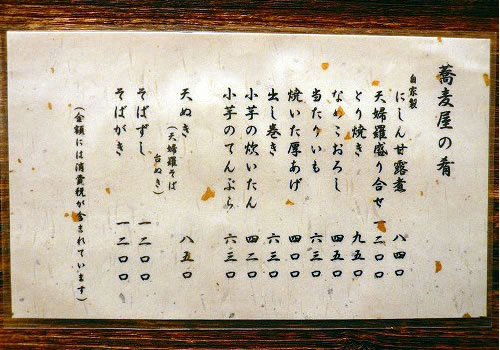 蕎麦屋の肴
自家製
にしん甘露煮 八四〇
天婦羅盛り合せ 一二〇〇
とり焼き 九五〇
なめこおろし 四五〇
当たりいも 六三〇
焼いた厚あげ 四〇〇
出し巻き 六三〇
小芋の炊いたん 四二〇
小芋のてんぷら 六三〇
天ぬき 八五〇
(天婦羅そば
台ぬき)
そばずし 一二〇〇
そばがき 一二〇〇
(金額には消費税が含まれています)